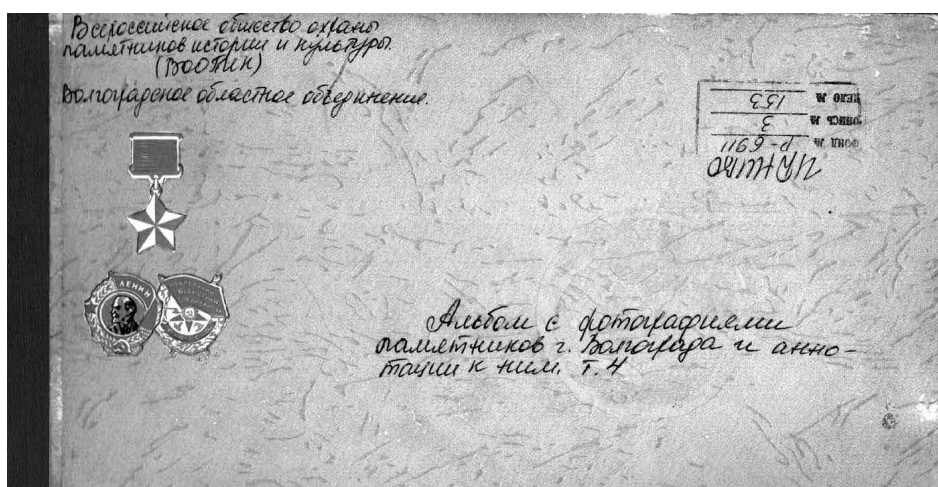 Всероссийское общество охраны
памятников истории и культуры.
(ВООПИК)
Волгоградское областное объединение.
ЦДНИВО
ФОНД № Р-6911
ОПИСЬ № 3
ДЕЛО № 153
ЛЕНИН
Альбом с фотографиями
памятников г. Волгограда и анно-
тации к ним. т. 4